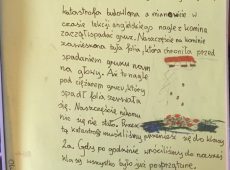 katastrofa budowlana a mianowicie w
czasie lekcji angielskiego nagle z komina
zaczął spadać gruz. Na szczęście na kominie
zawieszona była folia, która chroniła przed
spadaniem gruzu nam
na głowy. Aż tu nagle
pod ciężarem gruzu, który
spadł folia zerwała
się. Na szczęście nikomu
nic się nie stało. Przez
tą katastrofę musieliśmy przenieść się do klasy
2a. Gdy po godzinie wróciliśmy do naszej
klasy wszystko było już posprzątane.